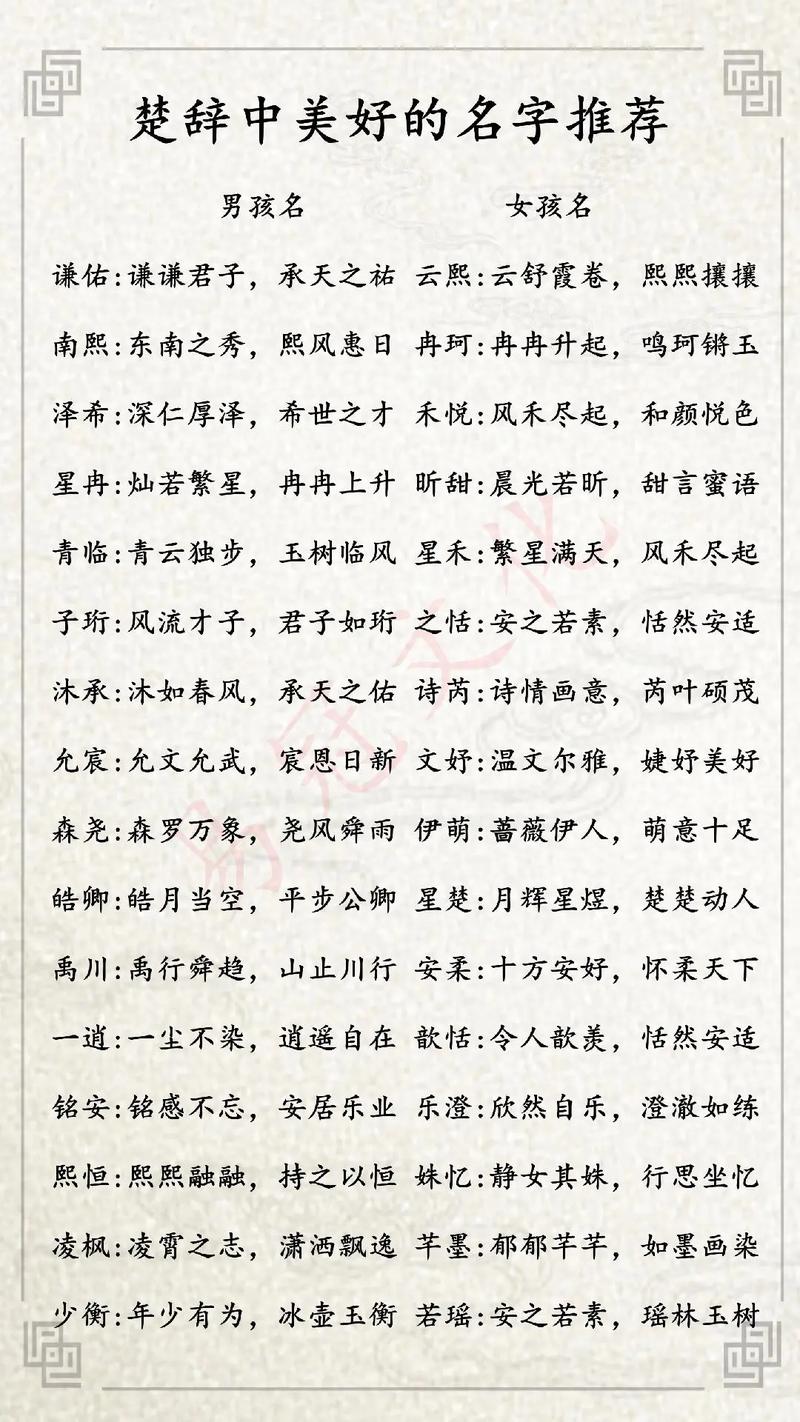 楚辞中美好的名字推荐
男孩名 女孩名
谦佑:谦谦君子，承天之祐 云熙:云舒霞卷，熙熙攘攘
南熙:东南之秀，熙风惠日 冉珂:冉冉升起，鸣珂锵玉
泽希:深仁厚泽，希世之才 禾悦:风禾尽起，和颜悦色
星冉:灿若繁星，冉冉上升 昕甜:晨光若昕，甜言蜜语
青临:青云独步，玉树临风 星禾:繁星满天，风禾尽起
子珩:风流才子，君子如珩 之恬:安之若素，恬然安适
沐承:沐如春风，承天之佑 诗芮:诗情画意，芮叶硕茂
允宸:允文允武，宸恩日新 文妤:温文尔雅，婕妤美好
森尧:森罗万象，尧风舜雨 伊萌:蔷薇伊人，萌意十足
皓卿:皓月当空，平步公卿 星楚:月辉星煜，楚楚动人
禹川:禹行舜趋，山止川行 安柔:十方安好，怀柔天下
一逍:一尘不染，逍遥自在 歆恬:令人歆羡，恬然安适
铭安:铭感不忘，安居乐业 乐澄:欣然自乐，澄澈如练
熙恒:熙熙融融，持之以恒 姝忆:静女其姝，行思坐忆
凌枫:凌霄之志，潇洒飘逸 芊墨:郁郁芊芊，如墨画染
少衡:年少有为，冰壶玉衡 若瑶:安之若素，瑶林玉树
易冠文化